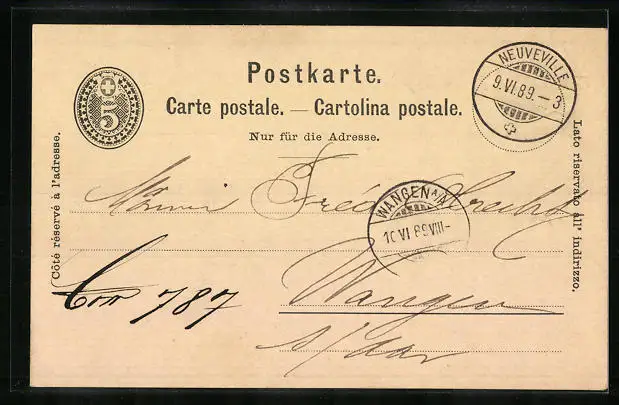 5
Postkarte.
Carte postale. — Cartolina postale.
Nur für die Adresse.
NEUVEVILLE
9.VI.89.—3
Côté réservé à l'adresse.
Lato riservato all' indirizzo.
Fréd
WANGEN A/A
10 VI 89 VIII–
787
Wangen
s/Aar